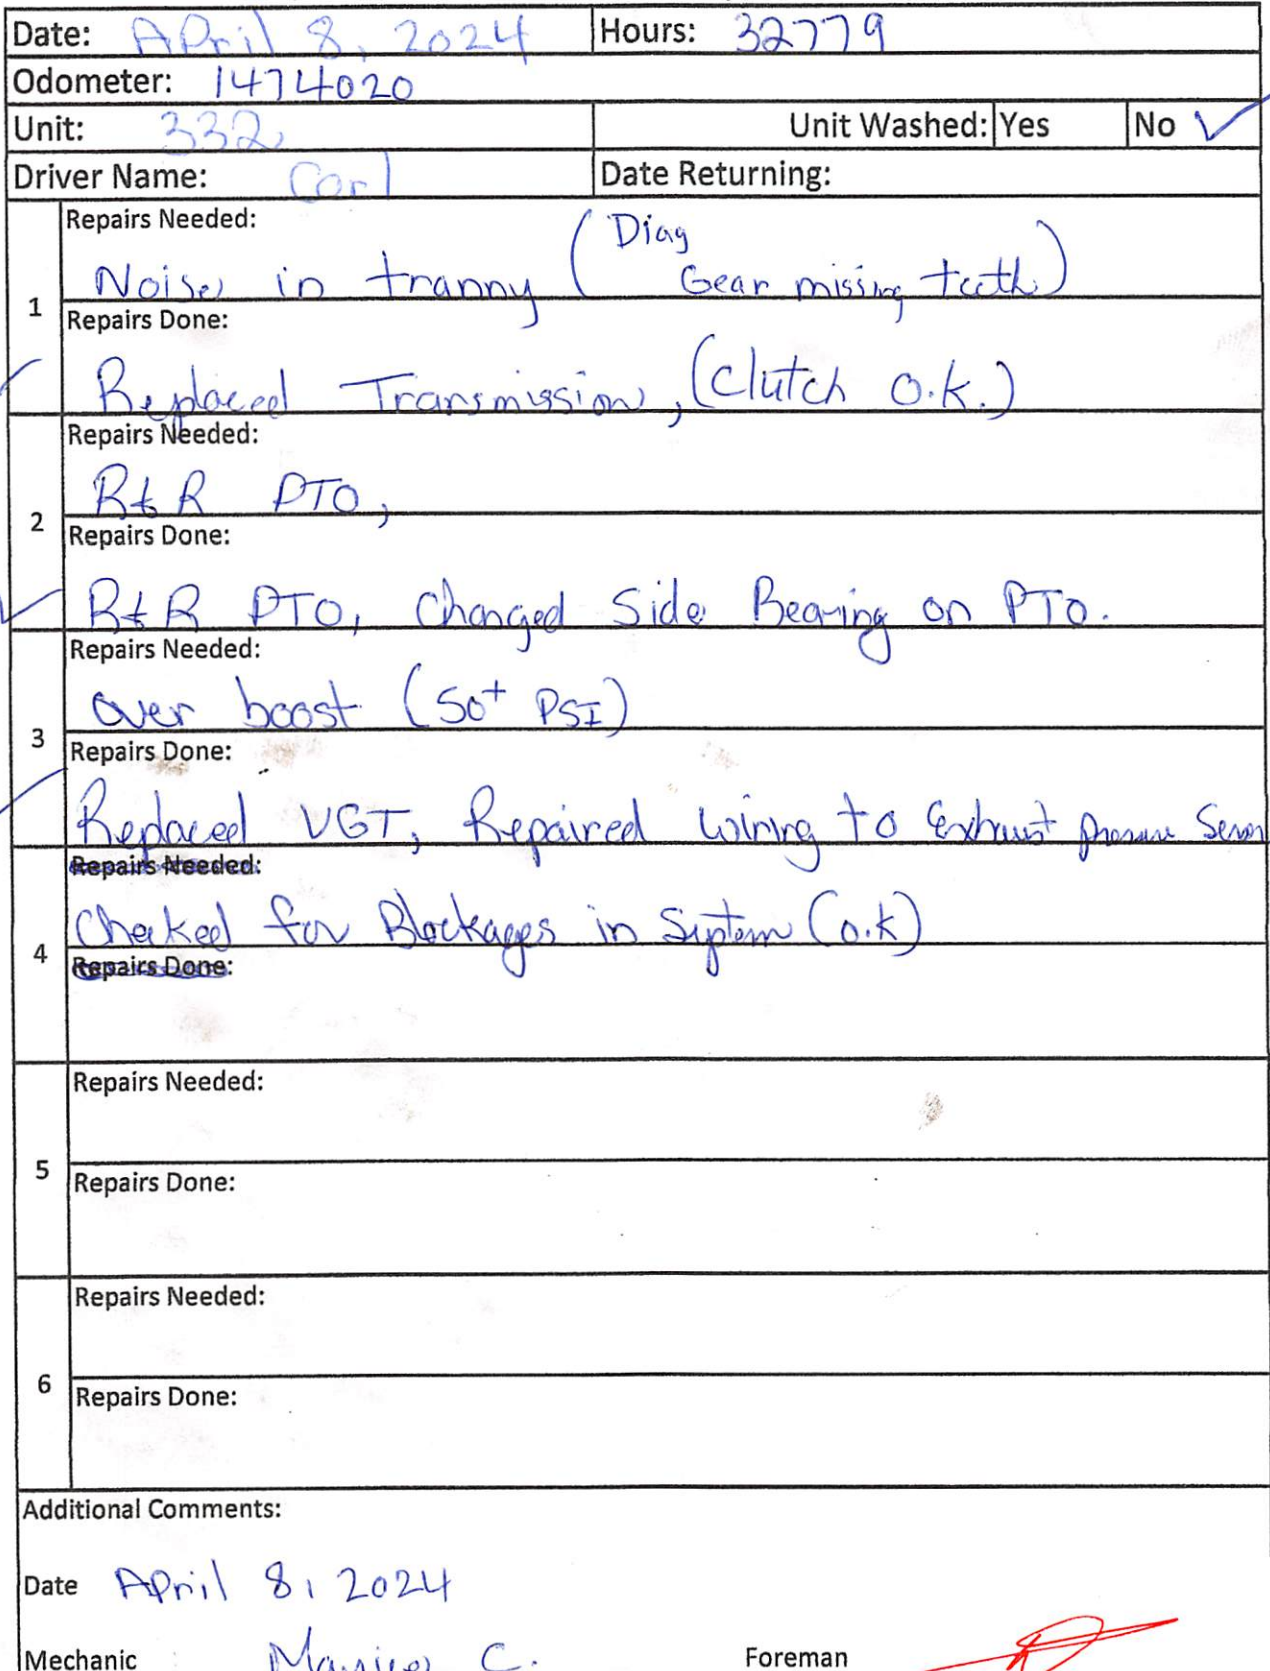 Date: April 8, 2024 Hours: 32779
Odometer: 1474020
Unit: 332 Unit Washed: Yes No ✓
Driver Name: Carl Date Returning:
Repairs Needed:
Noise in tranny (Diag
Gear missing teeth)
1
Repairs Done:
Replaced Transmission, (Clutch O.K.)
Repairs Needed:
R&R PTO,
2
Repairs Done:
R&R PTO, Changed Side Bearing on PTO.
Repairs Needed:
over boost (50+ PSI)
3
Repairs Done:
Replaced VGT, Repaired wiring to Exhaust pressure
Repairs Needed:
Checked for Blockages in System (O.K)
4
Repairs Done:
Repairs Needed:
5
Repairs Done:
Repairs Needed:
6
Repairs Done:
Additional Comments:
Date April 8, 2024
Mechanic C. Foreman